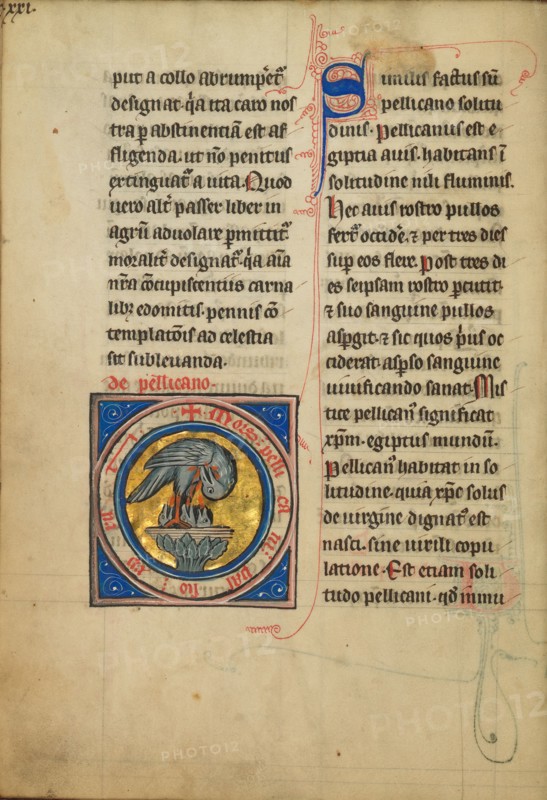 xxxi.
put a collo abrumpet᷑
designat. q̇a ita caro nos
tra ꝑ abstinentiā est af
fligenda. ut nō penitus
extinguat᷑ a uita. Quod
uero alt᷑ passer liber in
agrū aduolare ꝑmittit᷑.
moralit᷑ designat᷑. q̇a aīa
nr̄a cōcupiscentiis carna
libꝫ edomitis. pennis cō
templatōis ad celestia
sit subleuanda.
de pellicano.
Similis factus sū
pellicano solitu
dinis. Pellicanus est e
giptia auis. habitans ī
solitudine nili fluminis.
Hec auis rostro pullos
fert᷑ occidē. ⁊ per tres dies
suꝑ eos flere. Post tres di
es seipsam rostro ꝑcutit.
⁊ suo sanguine pullos
asꝑgit. ⁊ sic quos pͥus oc
ciderat. asꝑso sanguine
uiuificando sanat. Mis
tice pellican᷒ significat
xp̄m. egiptus mundū.
Pellican᷒ habitat in so
litudine. quia xp̄c solus
de uirgine dignat᷑ est
nasci. sine uirili copu
latione. Est etiam soli
tudo pellicani. qd̄ īmmu
PHOTO12